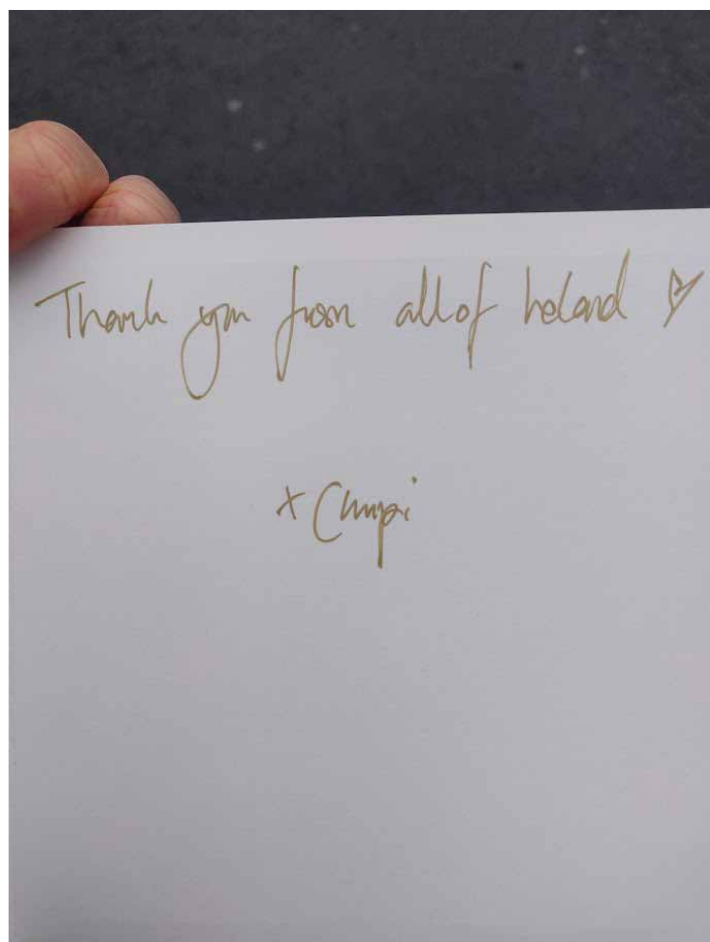 Thank you from all of Ireland ♡
x Chupi